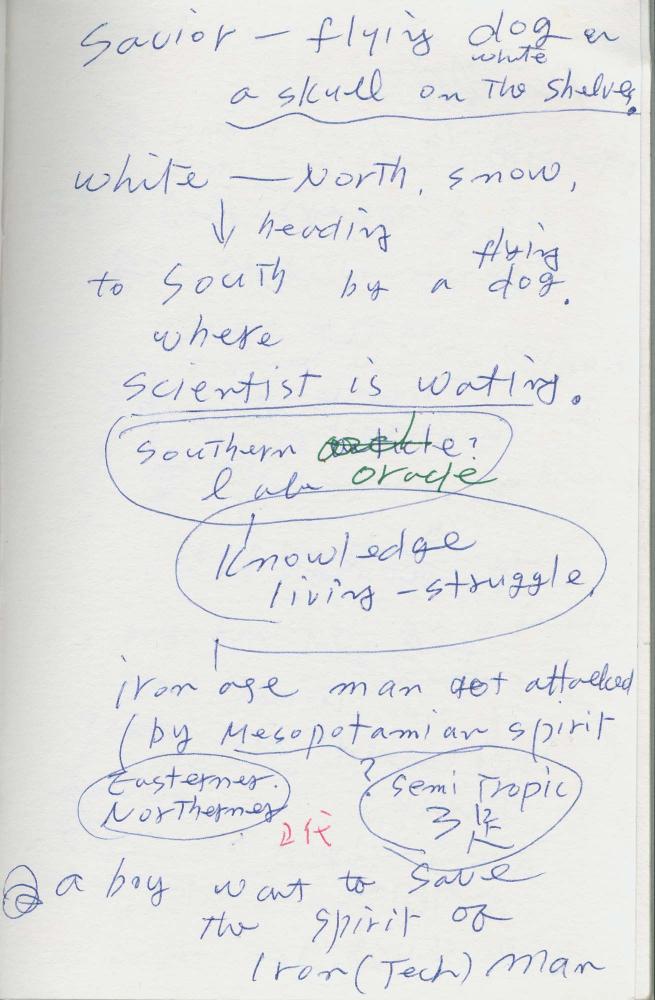 Savior – flying dog on
white
a skull on The shelves.
white — North, snow,
↓ heading
flying
to South by a dog.
where
scientist is wating.
Southern article?
lab oracle
Knowledge
living – struggle
iron age man got attacked
(by Mesopotamian spirit
Easterner.
Northerner
? Semi Tropic
a boy want to save
the spirit of
Iron (Tech) man